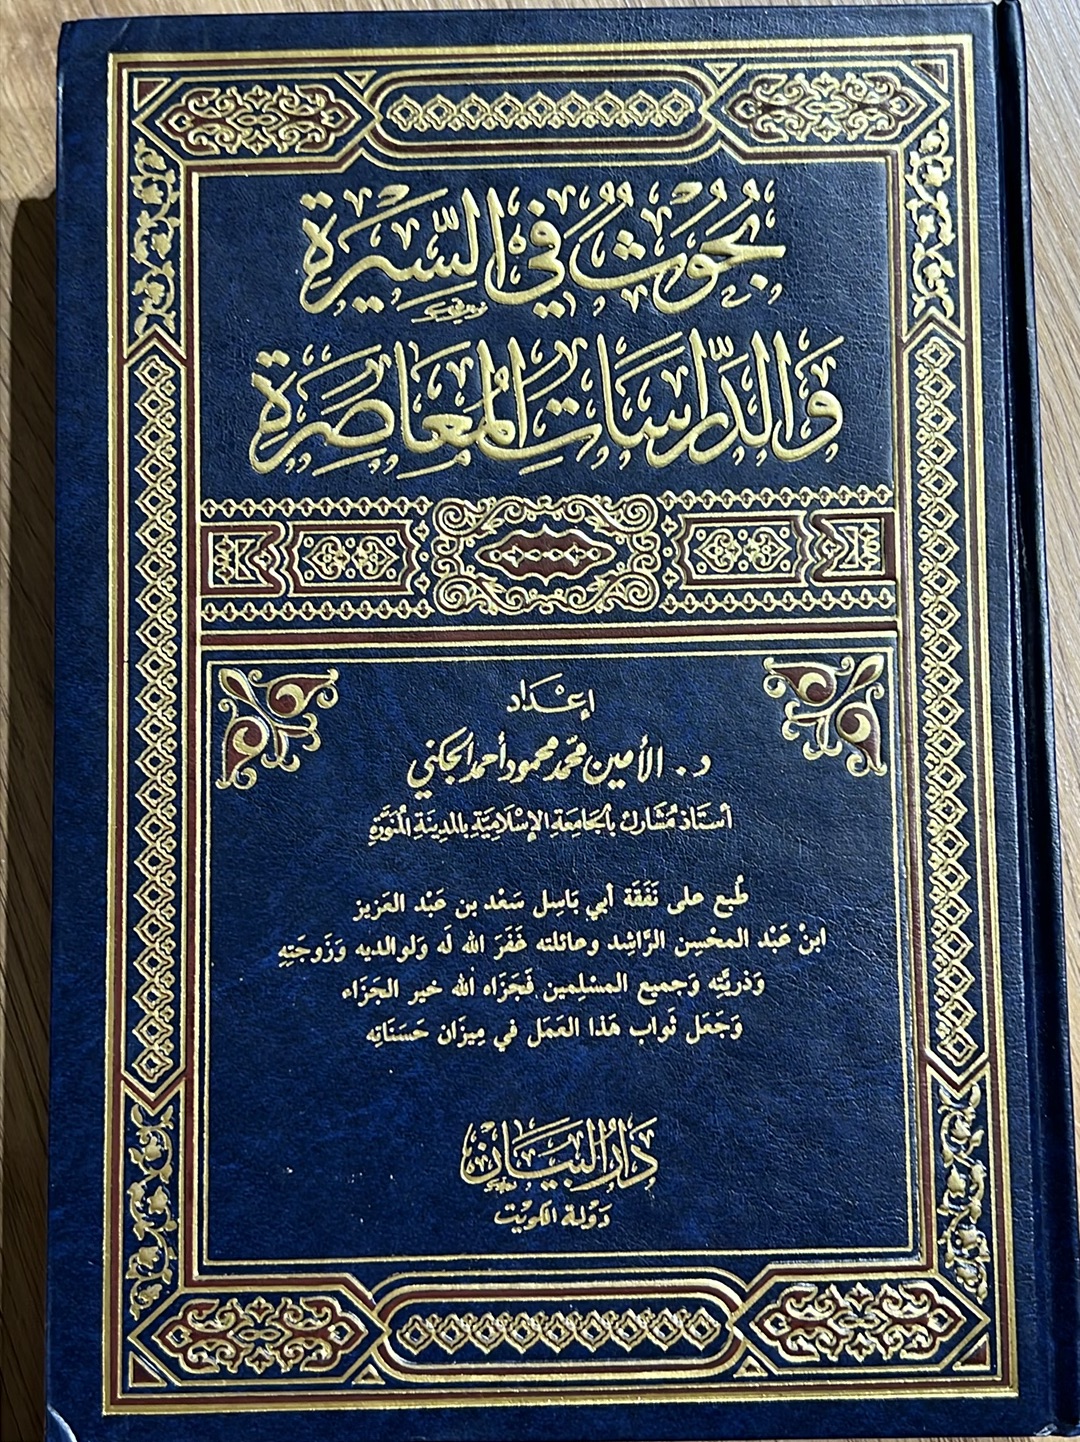 بُحُوثٌ فِي السِّيرَةِ
وَالدِّرَاسَاتِ المُعَاصِرَةِ
إعْدَاد
د. الأمين محمّد محمود أحمد الجكني
أستَاذ مُشَارك بالجَامعَةِ الإسْلَاميَّةِ بالمدِينَةِ المُنَوَّرَةِ
طُبع على نَفَقَة أبي بَاسِل سَعْد بن عَبْد العَزيز
ابنْ عَبْد المحْسِن الرَّاشِد وعائلته غَفَرَ الله لَه وَلوالديه وَزَوجَتِهِ
وَذريَّتِه وَجميع المسْلِمين فَجَزَاه الله خير الجَزَاء
وَجَعَل ثَواب هَذا العَمَل في مِيزَان حَسَنَاتِه
دَارُ البَيَان
دَوْلة الكوَيْت